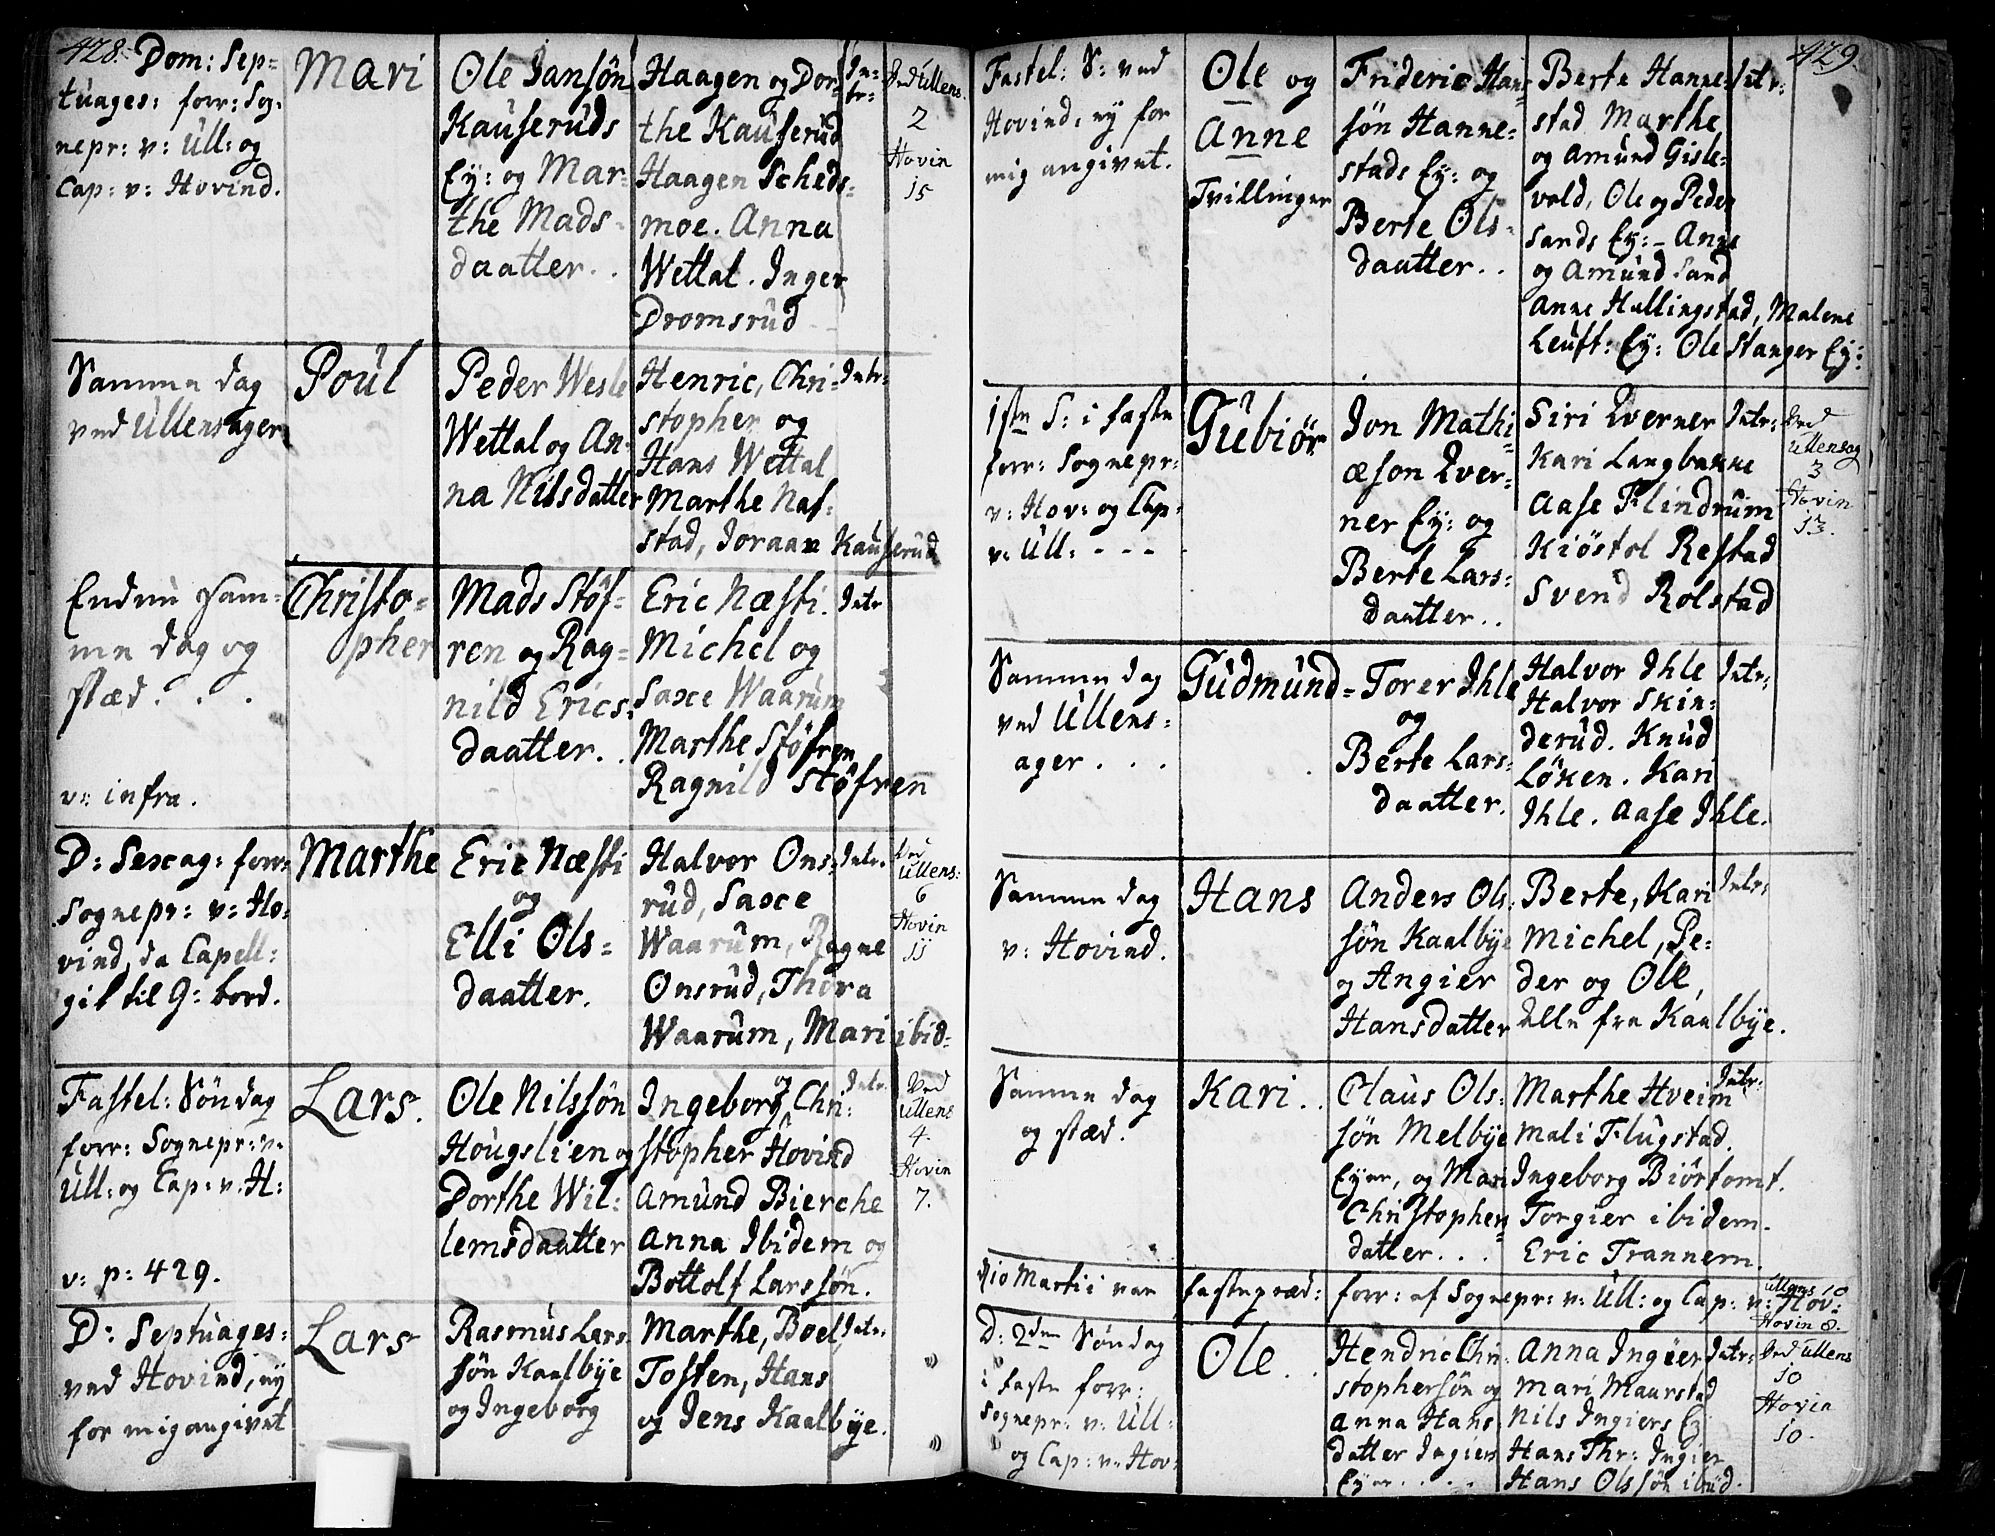 428.
Dom: Sep=
tuages: forr: Sog=
nepr: v: Ull: og
Cap: v: Hovind.
Mari
Ole Jansøn
Kauserüds
Ey: og Mar=
the Mads=
daatter. .
Haagen og Dor=
the Kauserüd
Haagen Scheds=
moe. Anna
Wettal. Inger
Dromsrüd
In=
tr:
Ved Ullens.
2
Hovin
15
Samme dag
ved Ullensager
Poül
Peder Wesle
Wettal og An=
na Nilsdatter
Henric, Chri=
stopher og
Hans Wettal
Marthe Naf=
stad, Joraan Kauserüd
Intr:
Endnu sam=
me dag og
stæd. . .
v: infra.
Christo=
pher
Mads Støf=
ren og Rag=
nild Erics=
daatter. .
Eric Næsti.
Michel og
Saxe Waarüm
Marthe Støfren
Ragnild Støfren
Intr
D: Sexag: forr:
Sognepr: v: Ho=
vind, da Capell:
gik til G: bord.
Marthe
Eric Næsti
og
Elli Ols=
daatter.
Halvor Ons=
rüd, Saxe
Waarüm, Ragne
Onsrüd, Thora
Waarüm, Mari ibid=
Intr.
Ved
Ullens:
6
Hovin
11
Fastel: Søndag
forr: Sognepr: v:
Ull: og Cap: v: H:
v: p: 429.
Lars.
Ole Nilssøn
Hougslien og
Dorthe Wil=
lemsdaatter
Ingeborg og Chri=
stopher Hovind
Amünd Bierche
Anna Ibidem og
Bottolf Larssøn.
Intr.
Ved
Ullens
4.
Hovin
7.
D: Septuages:
ved Hovind, ey
for mig angivet
Lars
Rasmus Lars
søn Kaalbye
og Ingeborg
Marthe, Boel,
Tosten, Hans
og Jens Kaalbye.
Intr:
429.
Fastel: S: ved
Hovind, ey for
mig angivet.
Ole og
Anne
Tvillinger
Frideric Han=
søn Hanne=
stads Ey: og
Berte Ols=
daatter. .
Berte Hanne=
stad Marthe
og Amünd Gisle=
vold, Ole og Peder
Sands Ey: - Anne
og Amünd Sand
Anne Hallingstad, Malene
Leuft: Ey: Ole Stanger Ey:
Intr:
1ste S: i faste
forr: Sognepr:
v: Hov: og Cap:
v: Ull: - - -
Gübiør
Jon Mathi=
æson Qver=
ner Ey: og
Berte Lars=
daatter. .
Siri Qverner
Kari Langbakke
Aase Flindrüm
Kiøstol Restad
Svend Rolstad
Intr:
Ved
Ullensag
3
Hovin
13.
Samme dag
ved Ullens=
ager. . .
Güdmünd=
Torer Ihle
og
Berte Lars=
daatter.
Halvor Ihle
Halvor Skin=
derüd. Knüd
Løken. Kari
Ihle. Aase Ihle.
Intr:
Samme dag
v: Hovind.
Hans
Anders Ols=
søn Kaalbye
og Angier
Hansdatter
Berte, Kari
Michel, Pe=
der og Ole,
Alle fra Kaalbye.
Intr:
Samme dag
og stæd.
Kari. .
Claus Ols=
søn Melbye
Eyer, og Mari
Christophers
datter. . .
Marthe Hveim
Mali Flugstad.
Ingeborg Biørtomt.
Torgier ibidem.
Eric Trannem.
Intr:
d 10 Martii var fastepræd: forr: af Sognepr: v: Ull: og Cap: v: Hov:
Ullens 10
Hovin 8.
D: 2den Søndag
i faste forr:
Sognepr: v: Ull:
og Cap: v: Hov:
Ole. .
Hendric Chri=
stophersøn og
Anna Hans
datter Ingiers
Eyer. . . .
Anna Ingier
Mari Maurstad
Nils Ingiers Ey
Hans Thr: Ingier
Hans Olssøn ibid.
Intr:
Ved Ullens
10
Hovin
10.